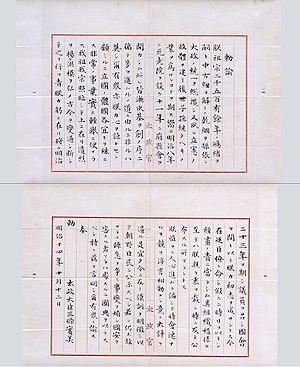 勅諭
朕祖宗二千五百有餘年ノ鴻緒ヲ
嗣キ中古紐ヲ解クノ乾綱ヲ振張シ
大政ノ統一ヲ總攬シ又夙ニ立憲ノ政體
ヲ建テ後世子孫繼クヘキノ
業ヲ為サンコトヲ期ス嚮ニ明治八年
ニ元老院ヲ設ケ十一年ニ府縣會ヲ
開カシム此レ皆漸次基ヲ創メ序ニ
循テ歩ヲ進ムルノ道ニ由ルニ非サルハ
莫シ爾有衆亦朕カ心ヲ諒トセン
顧ミルニ立國ノ體國各宜キヲ殊ニ
ス非常ノ事業實ニ輕擧ニ便ナラ
ス我祖我宗照臨シテ上ニ在リ遺烈
ヲ揚ケ洪模ヲ弘メ古今ヲ變通シ斷シ
テ之ヲ行フ責朕カ躬ニ在リ將ニ明治
太政官
二十三年ヲ期シ議員ヲ召シ國會
ヲ開キ以テ朕カ初志ヲ成サントス今
在廷臣僚ニ命シ假スニ時日ヲ以テシ
經畫ノ責ニ當ラシム其組織權限ニ
至テハ朕親ラ衷ヲ裁シ時ニ及テ公
布スル所アラントス
朕惟フニ人心進ムニ偏シテ時會速ナ
ルヲ競フ浮言相動カシ竟ニ大計ヲ
遺ル是レ宜シク今ニ及テ謨訓ヲ明徴シ以
テ朝野臣民ニ公示スヘシ若シ仍ホ故
サラニ躁急ヲ爭ヒ事變ヲ煽シ國安ヲ
害スル者アラハ處スルニ國典ヲ以テス
ヘシ特ニ茲ニ言明シ爾有衆ニ諭ス
奉
勅 太政大臣三條實美
明治十四年十月十二日
太政官